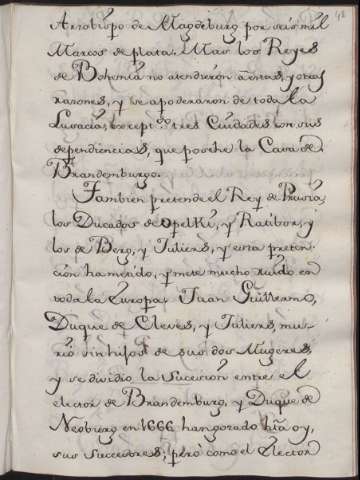 Arzobispo de Magdeburg por seis mil
Marcos de plata. Mas los Reyes
de Bohemia no atendieron a estas, y otras
razones, y se apoderaron de toda la
Lusacia, except.º tres Ciudades con sus
dependiencias, que poséhe la Casa de
Brandemburgo.
Tambien pretende el Rey de Prusia,
los Ducados de Opelki, y Ratibor, y
los de Berg, y Juliers, y esta preten-
cion ha metido, y mete mucho ruido en
toda la Europa. Juan Guillermo,
Duque de Cleves, y Juliers, mu-
rió sin hijos de sus dos Mugeres,
y se dividio la Sucesion entre el
elector de Brandemburg, y Duque de
Neoburg en 1666 han gozado hta oy,
sus Succesores; pero como el Elector